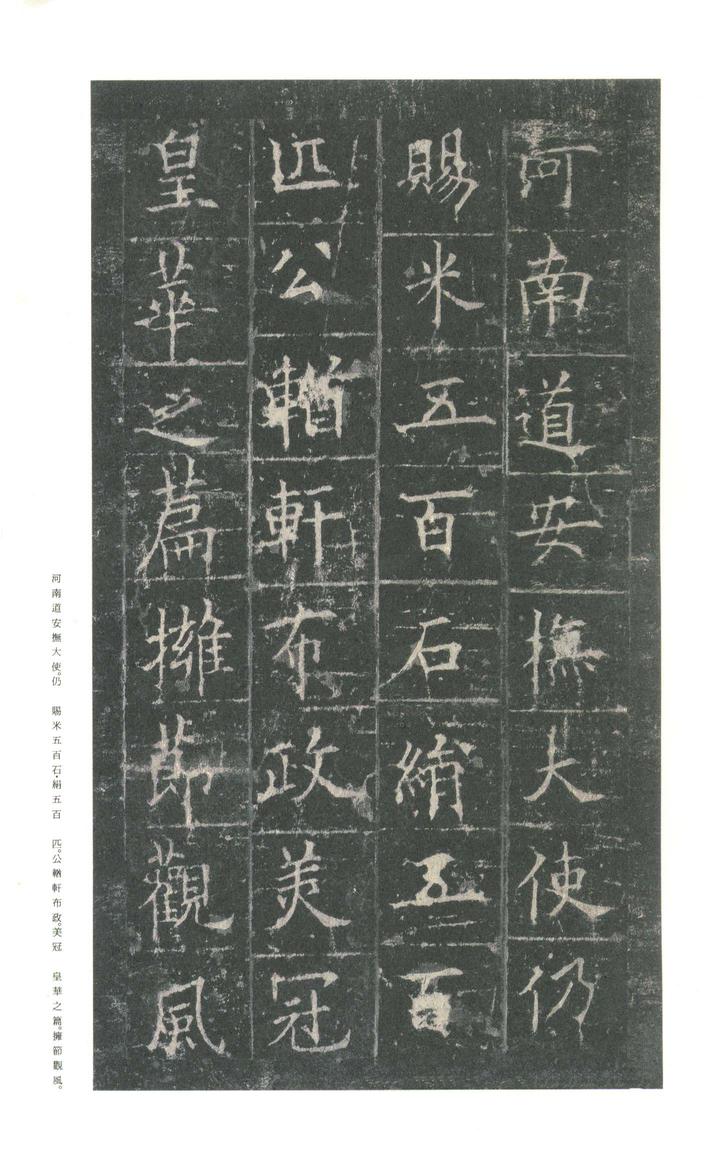 河南道安撫大使仍
賜米五百石絹五百
匹公輶軒布政美冠
皇華之篇擁節觀風
河南道安撫大使。仍　賜米五百石・絹五百　匹。公輶軒布政。美冠　皇華之篇。擁節觀風。